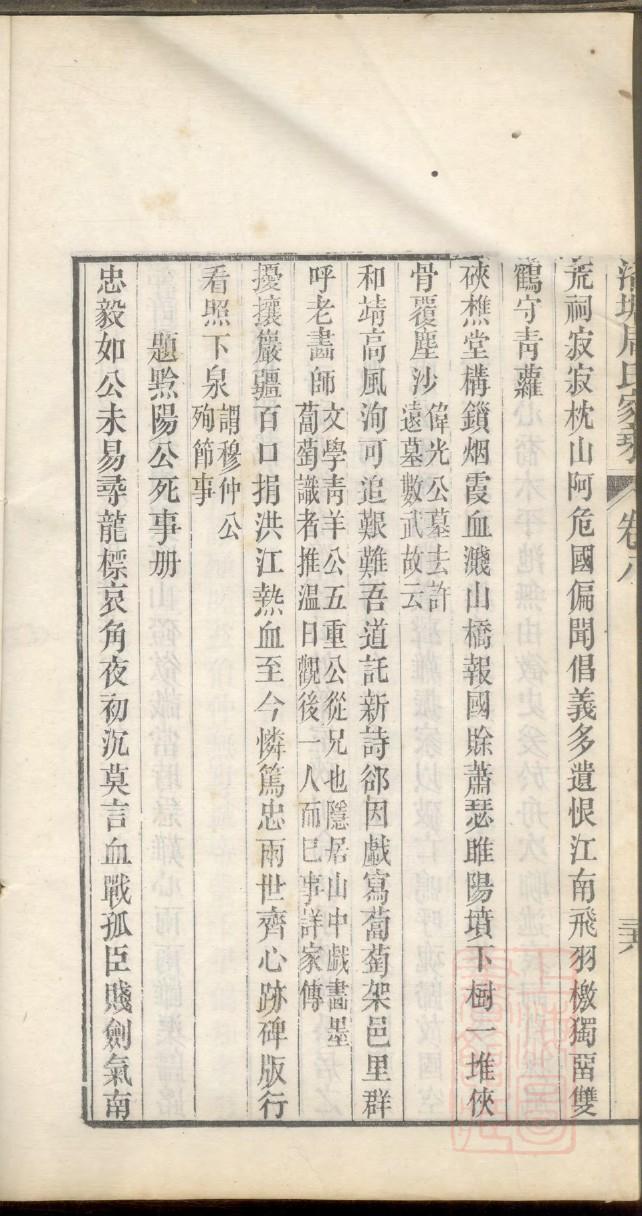 周氏家
卷八
三六
荒祠寂寂枕山阿危國偏聞倡義多遺恨江南飛羽檄獨畱雙
鶴守青蘿
硤樵堂構鎖烟霞血濺山橋報國賒蕭瑟雎陽墳下樹一堆俠
骨覆塵沙偉光公墓去許
遠墓數武故云
和靖高風洵可追艱難吾道託新詩郤因戱寫蔔萄架邑里群
呼老畵師文學靑羊公五重公從兄也隱居山中戱畵墨
蔔萄識者推溫日觀後一人而已事詳家傳
擾攘巖疆百口捐洪江熱血至今憐篤忠兩世齊心跡碑版行
看照下泉謂穆仲公
殉節事
題黔陽公死事册
忠毅如公未易尋龍標哀角夜初沉莫言血戰孤臣賤劍氣南